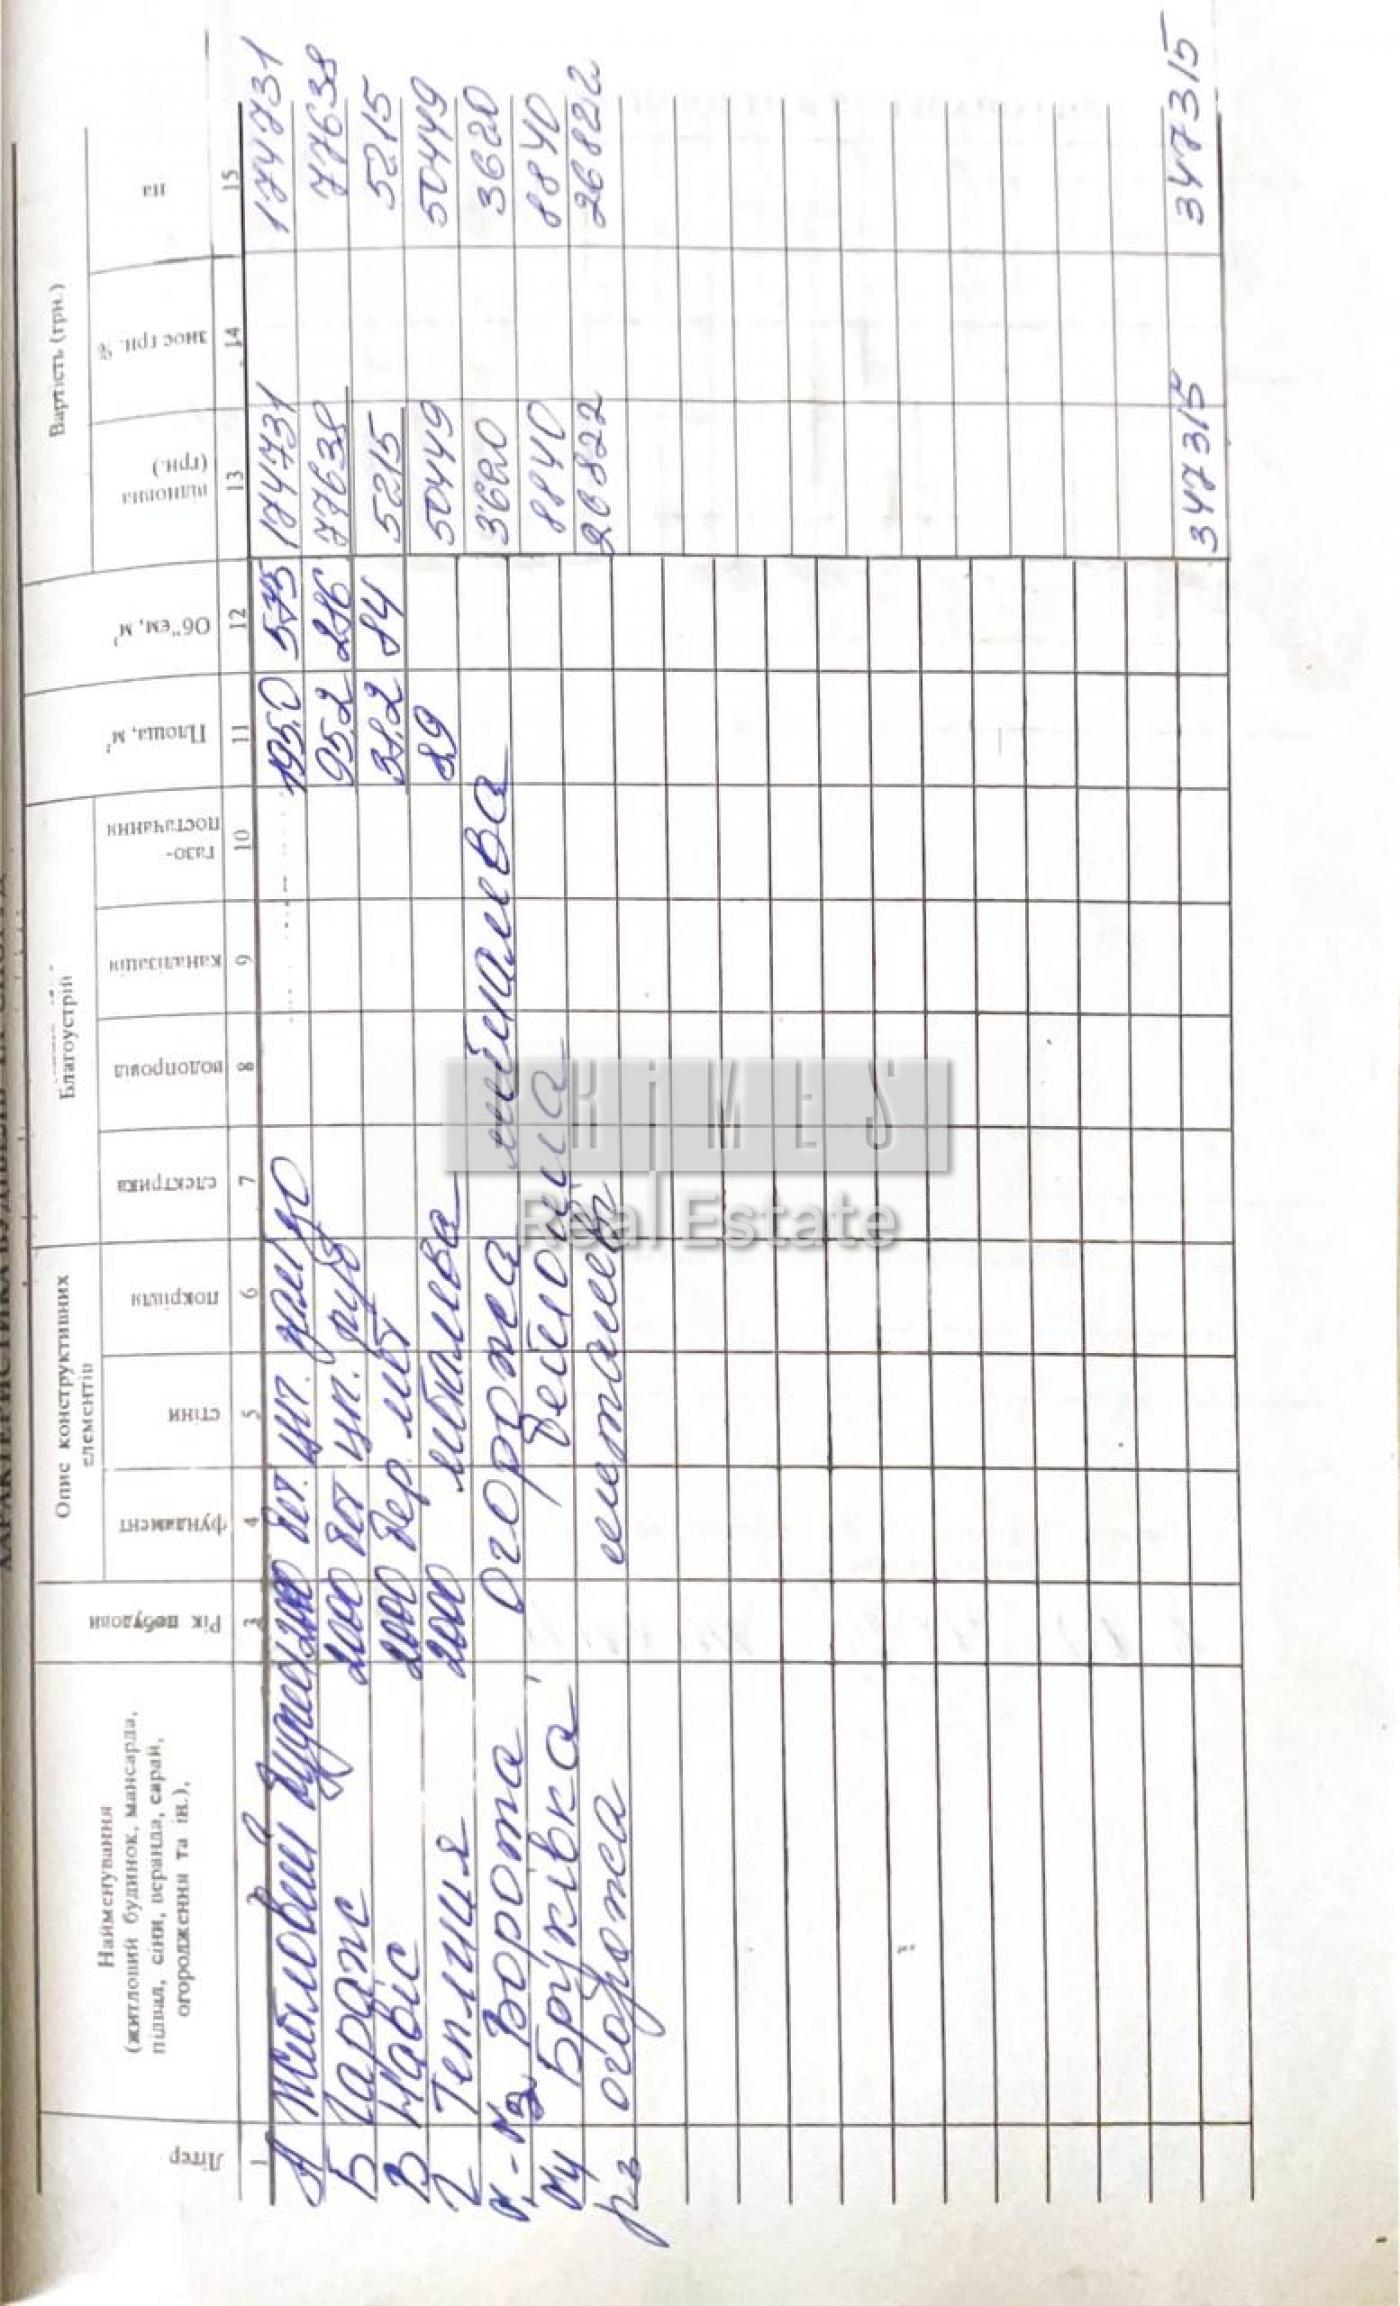 ХАРАКТЕРИСТИКА БУДИНКІВ ТА СПОРУД
Літер
Найменування
(житловий будинок, мансарда,
підвал, сіни, веранда, сарай,
огородження та ін.),
Рік побудови
Опис конструктивних
елементів
фундамент
стіни
покрівля
Благоустрій
електрика
водопровід
каналізація
газо-
постачання
Площа, м²
Об"єм, м³
Вартість (грн.)
відновна
(грн.)
знос грн. %
на
1 3 4 5 6 7 8 9 10 11 12 13 14 15
А Житловий будинок 2000 195,0 575 174731 174731
Б Гараж 2000 95,2 286 77638 77638
В Навіс 2000 38,2 84 5215 5215
Г Теплиця 2000 металева 89 50449 50449
Ворота Огорожа металева 3620 3620
Бруківка 8840 8840
огорожа металева 26822 26822
347315 347315
PRiMES
Real Estate